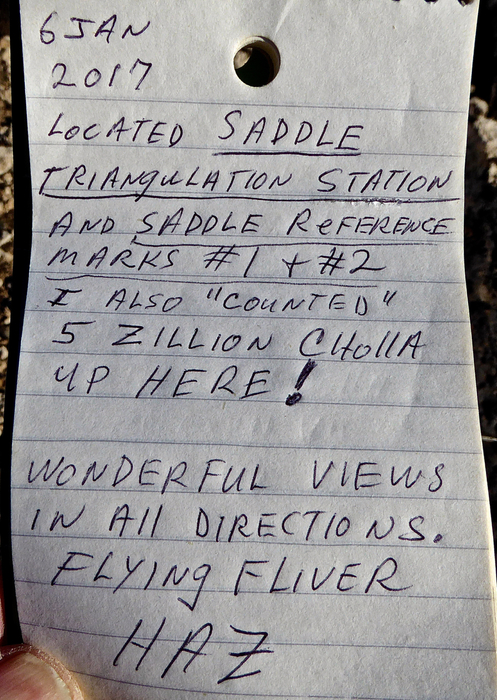 6 JAN
2017
LOCATED SADDLE
TRIANGULATION STATION
AND SADDLE REFERENCE
MARKS #1 + #2
I ALSO "COUNTED"
5 ZILLION CHOLLA
UP HERE!
WONDERFUL VIEWS
IN All DIRECTIONS.
FLYING FLIVER
HAZ